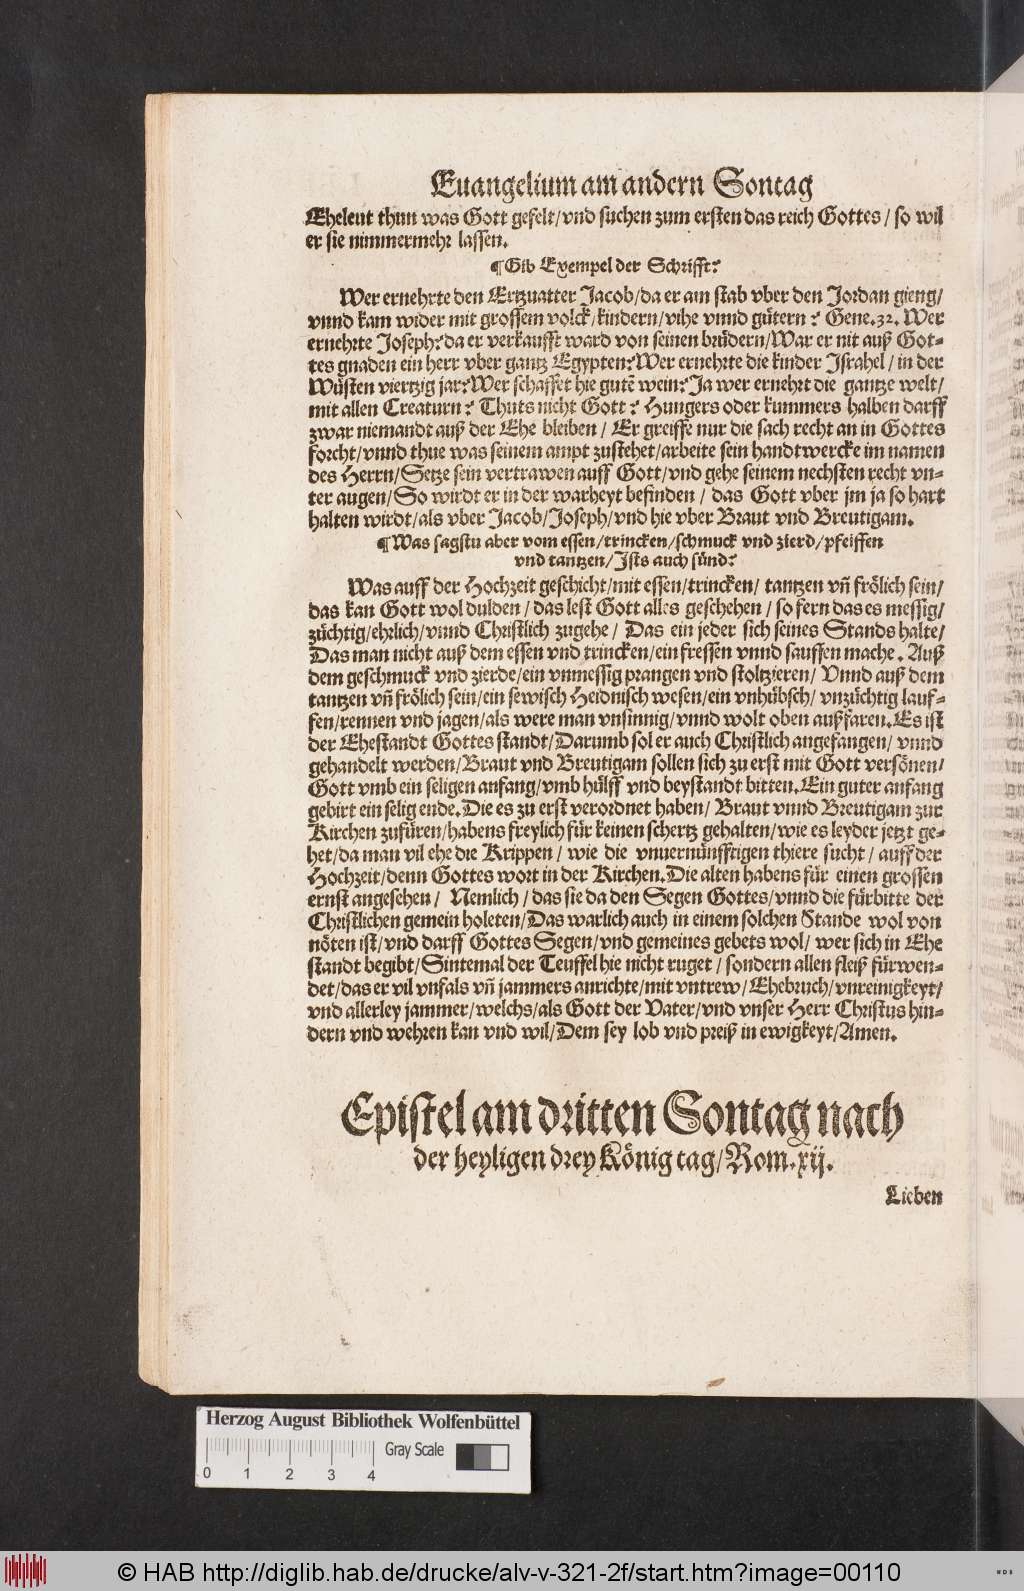 Euangelium am andern Sontag
Eheleut thun was Gott gefelt/vnd suchen zum ersten das reich Gottes/ so wil
er sie nimmermehr lassen.
¶Gib Exempel der Schrifft?
Wer ernehrte den Ertzuatter Jacob/da er am stab vber den Jordan gieng/
vnnd kam wider mit grossem volck/kindern/vihe vnnd gütern? Gene.32. Wer
ernehrte Joseph?da er verkaufft ward von seinen brüdern/War er nit auß Got-
tes gnaden ein herr vber gantz Egypten?Wer ernehrte die kinder Israhel/ in der
Wüsten viertzig jar?Wer schaffet hie gutẽ wein?Ja wer ernehrt die gantze welt/
mit allen Creaturn? Thuts nicht Gott? Hungers oder kummers halben darff
zwar niemandt auß der Ehe bleiben/ Er greiffe nur die sach recht an in Gottes
forcht/vnnd thue was seinem ampt zustehet/arbeite sein handtwercke im namen
des Herrn/Setze sein vertrawen auff Gott/vnd gehe seinem nechsten recht vn-
ter augen/So wirdt er in der warheyt befinden/ das Gott vber jm ja so hart
halten wirdt/als vber Jacob/Joseph/vnd hie vber Braut vnd Breutigam.
¶Was sagstu aber vom essen/trincken/schmuck vnd zierd/pfeiffen
vnd tantzen/Ists auch sünd?
Was auff der Hochzeit geschicht/mit essen/trincken/ tantzen vñ frölich sein/
das kan Gott wol dulden/das lest Gott alles geschehen/so fern das es messig/
züchtig/ehrlich/vnnd Christlich zugehe/ Das ein jeder sich seines Stands halte/
Das man nicht auß dem essen vnd trincken/ein fressen vnnd sauffen mache. Auß
dem geschmuck vnd zierde/ein vnmessig prangen vnd stoltzieren/ Vnnd auß dem
tantzen vñ frölich sein/ein sewisch Heidnisch wesen/ein vnhübsch/ vnzüchtig lauf-
fen/rennen vnd jagen/als were man vnsinnig/vnnd wolt oben außfaren.Es ist
der Ehestandt Gottes standt/Darumb sol er auch Christlich angefangen/ vnnd
gehandelt werden/Braut vnd Breutigam sollen sich zu erst mit Gott versönen/
Gott vmb ein seligen anfang/vmb hülff vnd beystandt bitten.Ein guter anfang
gebirt ein selig ende.Die es zu erst verordnet haben/ Braut vnnd Breutigam zur
Kirchen zufüren/habens freylich für keinen schertz gehalten/wie es leyder jetzt ge-
het/da man vil ehe die Krippen/ wie die vnuernünfftigen thiere sucht/ auff der
Hochzeit/denn Gottes wort in der Kirchen.Die alten habens für einen grossen
ernst angesehen/ Nemlich/das sie da den Segen Gottes/vnnd die fürbitte der
Christlichen gemein holeten/Das warlich auch in einem solchen Stande wol von
nöten ist/vnd darff Gottes Segen/vnd gemeines gebets wol/ wer sich in Ehe
standt begibt/Sintemal der Teuffel hie nicht ruget/sondern allen fleiß fürwen-
det/das er vil vnfals vñ jammers anrichte/mit vntrew/Ehebruch/vnreinigkeyt/
vnd allerley jammer/welchs/als Gott der Vater/vnd vnser Herr Christus hin-
dern vnd wehren kan vnd wil/Dem sey lob vnd preiß in ewigkeyt/Amen.
Epistel am dritten Sontag nach
der heyligen drey König tag/Rom.xij.
Lieben
Herzog August Bibliothek Wolfenbüttel
Gray Scale
0 1 2 3 4
© HAB http://diglib.hab.de/drucke/alv-v-321-2f/start.htm?image=00110